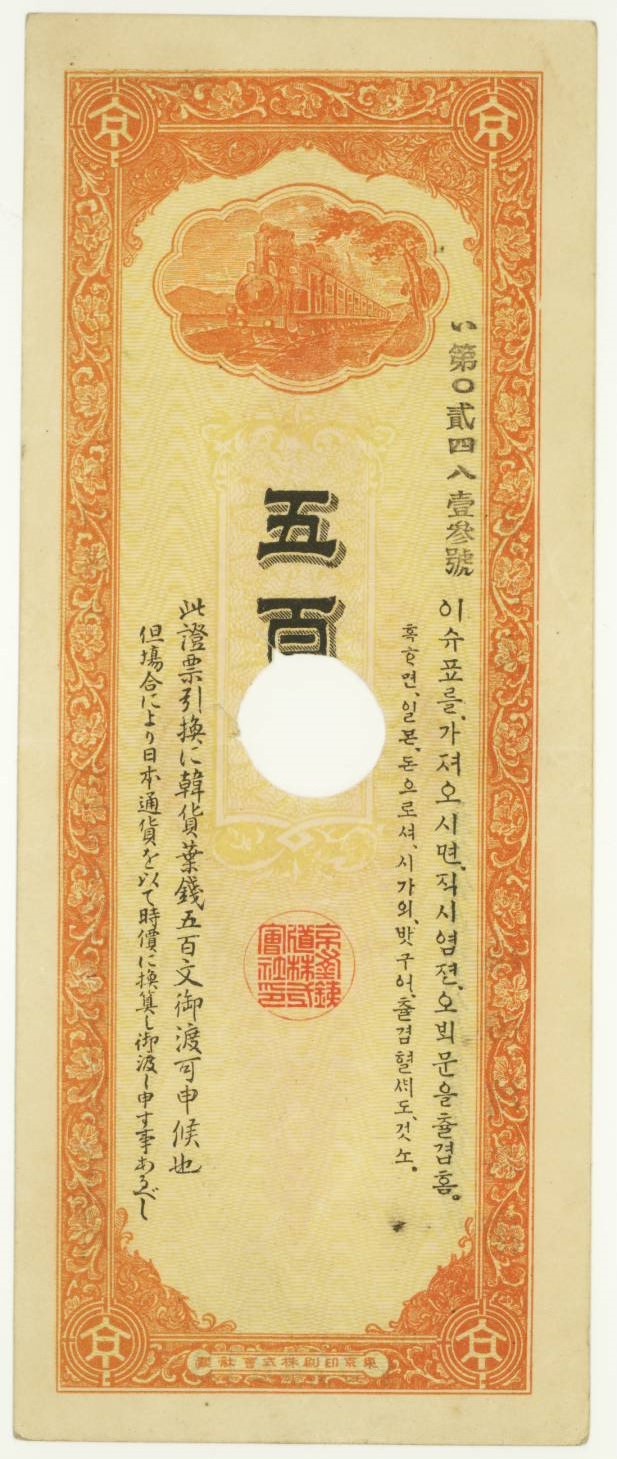 い第〇貳四八壹參號
이슈표를、가져오시면、직시염젼、오ᄇᆡᆨ문을츌겸홈。
혹ᄒᆞ면、일본、돈으로셔、시가의、밧구어、츌겸헐셰도、것노。
五百
京釜鐵道株式會社印
此證票引換に韓貨葉錢五百文御渡可申候也
但場合により日本通貨を以て時價に換算し御渡し申す事あるべし
東京印刷株式會社製